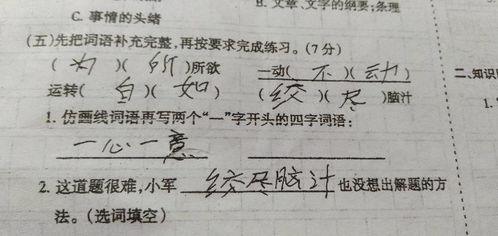 C. 事情的头绪 B. 文章、文字的纲要;条理
(五)先把词语补充完整,再按要求完成练习。(7分)
( 为 )( 所 )所欲 一动( 不 )( 动 )
运转( 自 )( 如 ) ( 绞 )( 尽 )脑汁
二、知识
1. 仿画线词语再写两个“一”字开头的四字词语: 1.
一心一意
2. 这道题很难,小军 绞尽脑汁 也没想出解题的方
法。(选词填空)